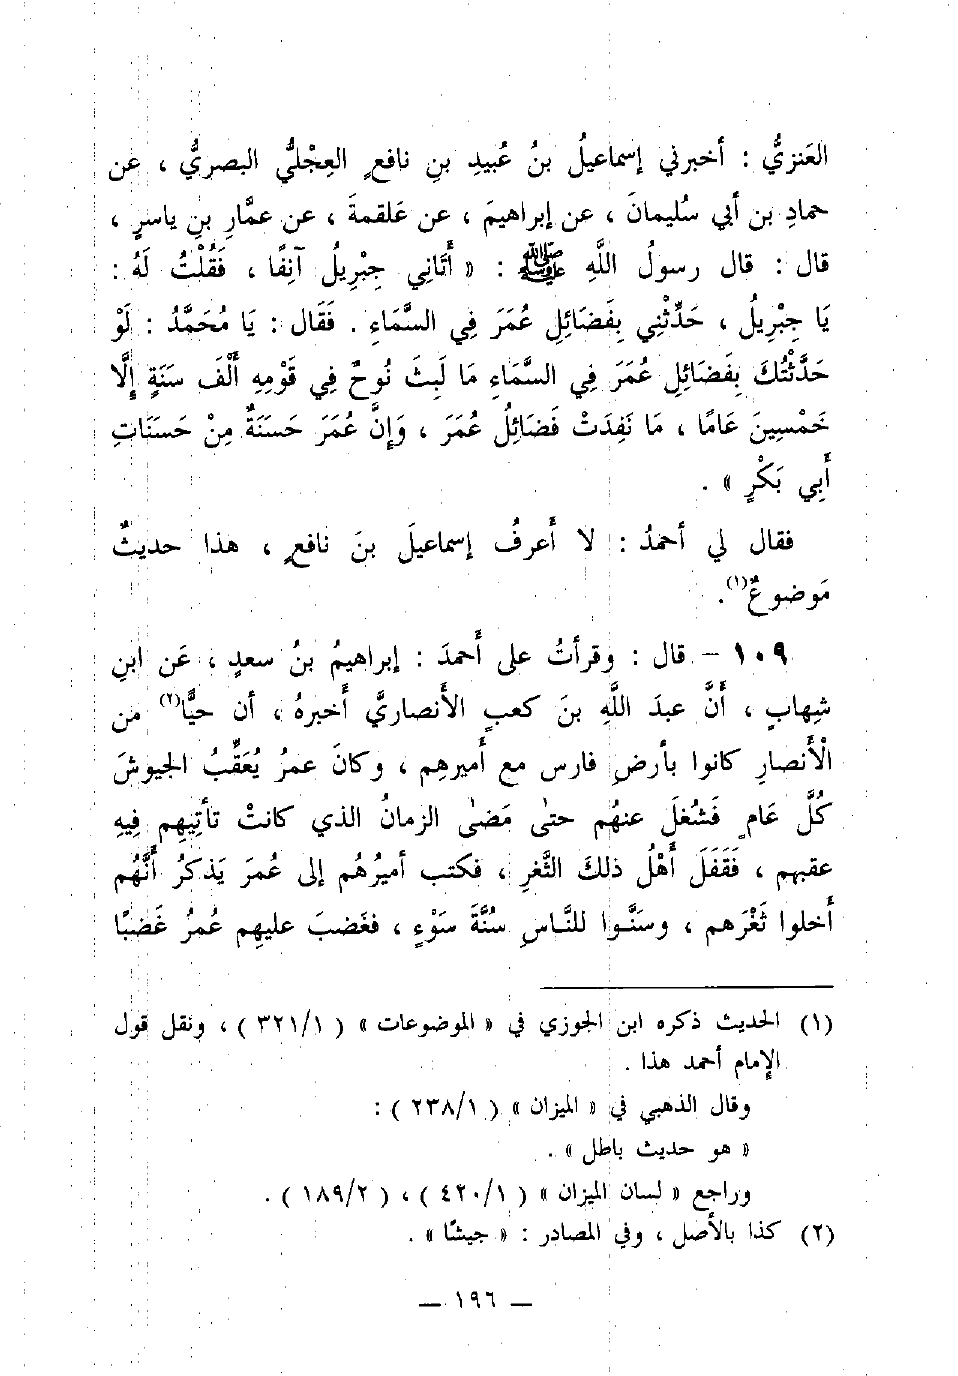 العَنزيُّ : أخبرني إسماعيلُ بنُ عُبيدِ بنِ نافعٍ العِجْليُّ البصريُّ ، عن
حمادِ بن أبي سُليمانَ ، عن إبراهيمَ ، عن عَلقمةَ ، عن عمَّارِ بنِ ياسرٍ ،
قال : قال رسولُ اللَّهِ ﷺ : « أَتَانِي جِبْرِيلُ آنِفًا ، فَقُلْتُ لَهُ :
يَا جِبْرِيلُ ، حَدِّثْنِي بِفَضَائِلِ عُمَرَ فِي السَّمَاءِ . فَقَالَ : يَا مُحَمَّدُ : لَوْ
حَدَّثْتُكَ بِفَضَائِلِ عُمَرَ فِي السَّمَاءِ مَا لَبِثَ نُوحٌ فِي قَوْمِهِ أَلْفَ سَنَةٍ إِلَّا
خَمْسِينَ عَامًا ، مَا نَفِدَتْ فَضَائِلُ عُمَرَ ، وَإِنَّ عُمَرَ حَسَنَةٌ مِنْ حَسَنَاتِ
أَبِي بَكْرٍ » .
فقال لي أحمدُ : لا أَعرفُ إسماعيلَ بنَ نافعٍ ، هذا حديثٌ
مَوضوعٌ(١).
١٠٩ – قال : وقرأتُ على أَحمدَ : إبراهيمُ بنُ سعدٍ ، عَن ابنِ
شِهابٍ ، أَنَّ عبدَ اللَّهِ بنَ كعبٍ الأَنصاريَّ أَخبرهُ ، أن حيًّا(٢) من
الْأَنصارِ كانوا بأرضِ فارس مع أَميرهِم ، وكانَ عمرُ يُعَقِّبُ الجيوشَ
كُلَّ عَامٍ فَشُغلَ عنهُم حتىٰ مَضىٰ الزمانُ الذي كانتْ تأتِيهِم فِيهِ
عقبهم ، فَقَفَلَ أَهْلُ ذلكَ الثَّغرِ ، فكتب أميرُهُم إلى عُمرَ يَذكرُ أَنَّهُم
أَخلوا ثَغْرَهم ، وسَنَّوا للنَّاسِ سُنَّةَ سَوْءٍ ، فغَضبَ عليهِم عُمرُ غَضبًا
(١) الحديث ذكره ابن الجوزي في « الموضوعات » ( ٣٢١/١ ) ، ونقل قول
الإمام أحمد هذا .
وقال الذهبي في « الميزان » ( ٢٣٨/١ ) :
« هو حديث باطل » .
وراجع « لسان الميزان » ( ٤٢٠/١ ) ، ( ١٨٩/٢ ) .
(٢) كذا بالأصل ، وفي المصادر : « جيشًا » .
— ١٩٦ —